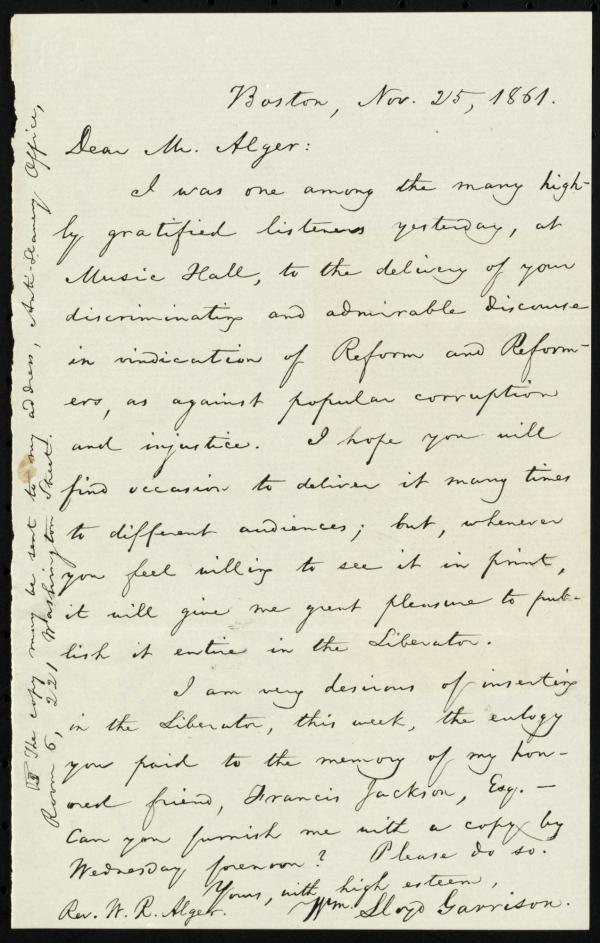 Boston, Nov. 25, 1861.
Dear Mr. Alger:
I was one among the many high-
ly gratified listeners yesterday, at
Music Hall, to the delivery of your
discriminating and admirable discourse
in vindication of Reform and Reform-
ers, as against popular corruption
and injustice. I hope you will
find occasion to deliver it many times
to different audiences; but, whenever
you feel willing to see it in print,
it will give me great pleasure to pub-
lish it entire in the Liberator.
I am very desirous of inserting
in the Liberator, this week, the eulogy
you paid to the memory of my hon-
ored friend, Francis Jackson, Esq. —
Can you furnish me with a copy by
Wednesday forenoon? Please do so.
Yours, with high esteem,
Wm. Lloyd Garrison.
Rev. W. R. Alger.
☞ The copy may be sent to my address, Anti-Slavery Office,
Room 6, 221 Washington Street.